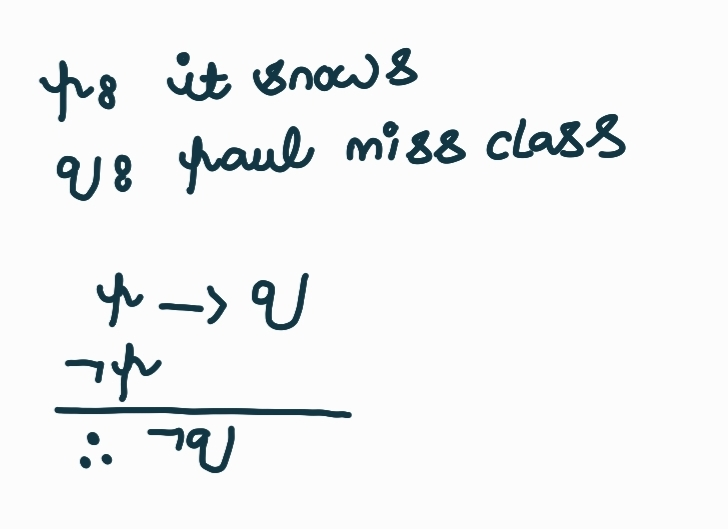 p: it snows
q: paul miss class
p → q
¬p
∴ ¬q